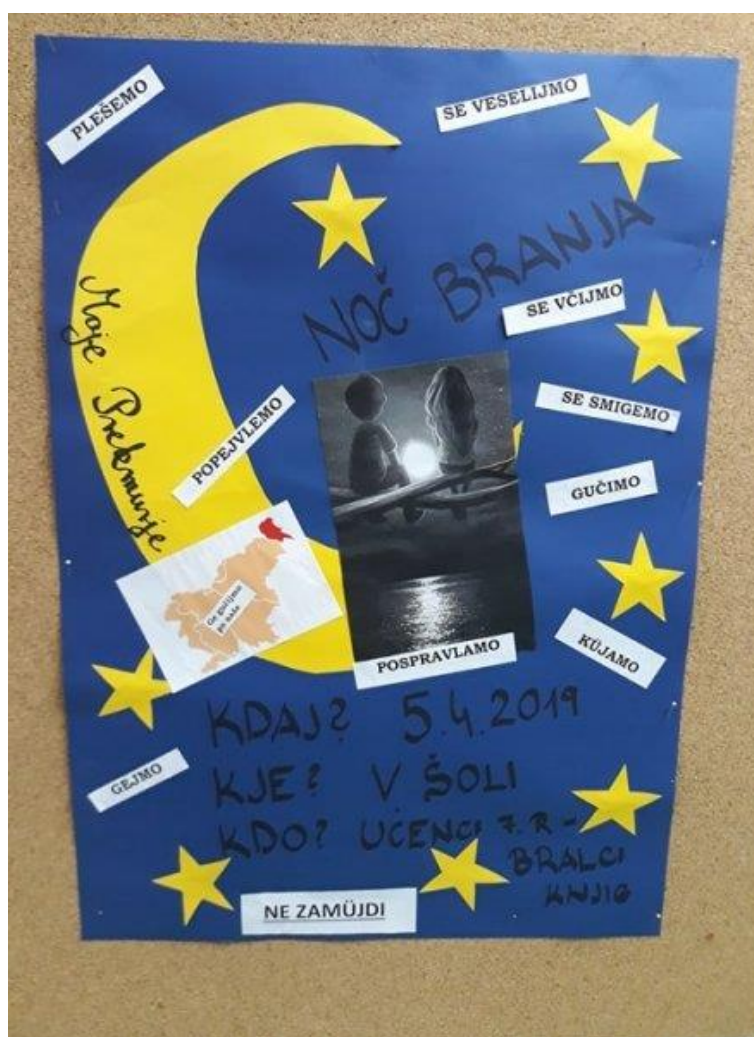 PLEŠEMO
SE VESELIJMO
NOČ BRANJA
SE VČIJMO
Moje Prekmurje
SE SMIGEMO
POPEJVLEMO
GUČIMO
Ge gučijmo
po naše
KÜJAMO
POSPRAVLAMO
KDAJ? 5.4.2019
GEJMO
KJE? V ŠOLI
KDO? UČENCI 7. R -
BRALCI
KNJIG
NE ZAMÜJDI